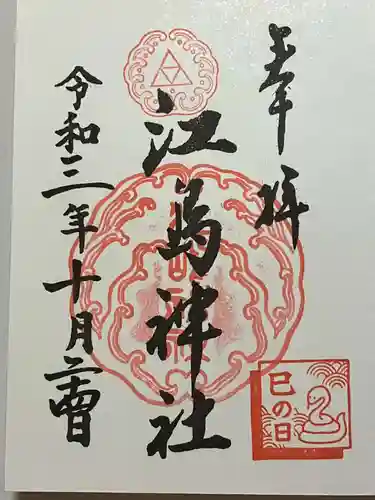 奉拝
江島神社
令和三年十月二十四日
巳の日